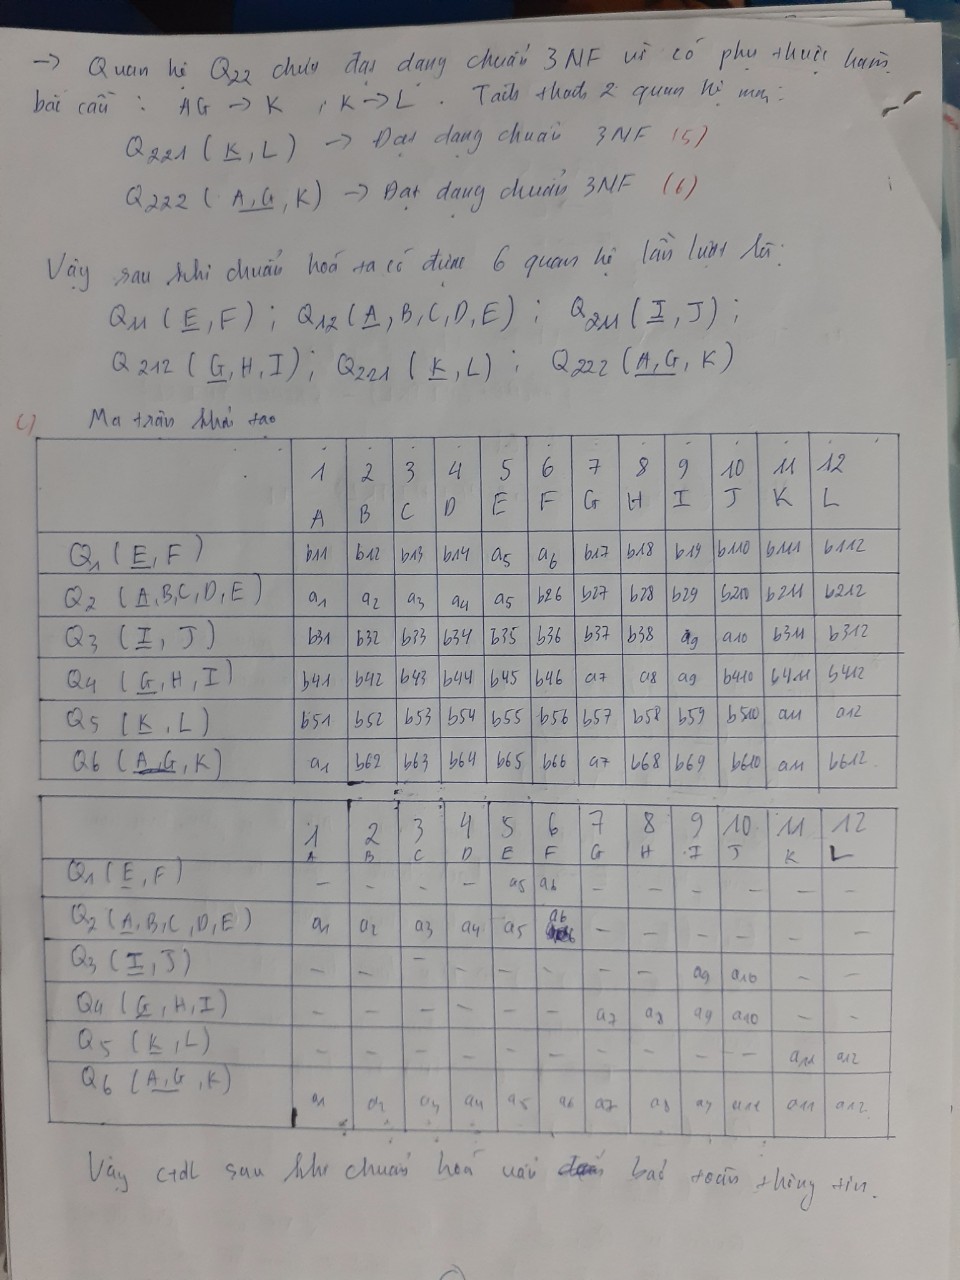 → Quan hệ Q22 chưa đạt dạng chuẩn 3NF vì có phụ thuộc hàm
bắc cầu : AG → K , K → L . Tách thành 2 quan hệ mới :
Q221 ( K, L ) → Đạt dạng chuẩn 3NF (5)
Q222 ( A, G, K ) → Đạt dạng chuẩn 3NF (6)
Vậy sau khi chuẩn hoá ta có được 6 quan hệ lần lượt là :
Q11 ( E, F ) ; Q12 ( A, B, C, D, E ) ; Q211 ( I, J ) ;
Q212 ( G, H, I ) ; Q221 ( K, L ) ; Q222 ( A, G, K )
c) Ma trận khởi tạo
1 2 3 4 5 6 7 8 9 10 11 12
A B C D E F G H I J K L
Q1 ( E, F ) b11 b12 b13 b14 a5 a6 b17 b18 b19 b110 b111 b112
Q2 ( A, B, C, D, E ) a1 a2 a3 a4 a5 b26 b27 b28 b29 b210 b211 b212
Q3 ( I, J ) b31 b32 b33 b34 b35 b36 b37 b38 a9 a10 b311 b312
Q4 ( G, H, I ) b41 b42 b43 b44 b45 b46 a7 a8 a9 b410 b411 b412
Q5 ( K, L ) b51 b52 b53 b54 b55 b56 b57 b58 b59 b510 a11 a12
Q6 ( A, G, K ) a1 b62 b63 b64 b65 b66 a7 b68 b69 b610 a11 b612
1 2 3 4 5 6 7 8 9 10 11 12
A B C D E F G H I J K L
Q1 ( E, F ) – – – – a5 a6 – – – – – –
Q2 ( A, B, C, D, E ) a1 a2 a3 a4 a5 a6 – – – – – –
Q3 ( I, J ) – – – – – – – – a9 a10 – –
Q4 ( G, H, I ) – – – – – – a7 a8 a9 a10 – –
Q5 ( K, L ) – – – – – – – – – – a11 a12
Q6 ( A, G, K ) a1 a2 a3 a4 a5 a6 a7 a8 a9 a11 a11 a12
Vậy ctdl sau khi chuẩn hoá vẫn bảo toàn thông tin.